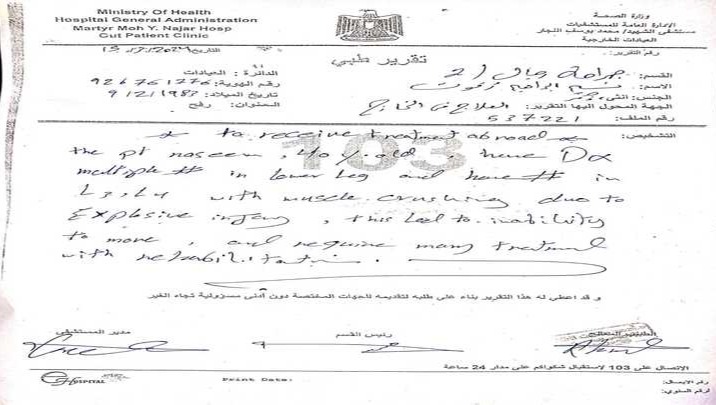 Ministry Of Health
Hospital General Administration
Martyr Moh Y. Najar Hosp
Out Patient Clinic
وزارة الصحة
الإدارة العامة للمستشفيات
مستشفى الشهيد/ محمد يوسف النجار
العيادات الخارجية
التاريخ
رقم التقرير:
تقرير طبي
القسم: جراحة رجال
الدائرة: العيادات
الاسم: نسيم ابراهيم
رقم الهوية: 926761776
الجنس: انثى
تاريخ الميلاد: 9/2/1983
الجهة المحول اليها التقرير: العلاج في الخارج
العنوان: رفح
رقم الملف: 537221
التشخيص:
to receive treatment abroad
103
the pt naseem, 40 y.old, have Dx
multiple # in lower leg and have # in
L3,L4 with muscle crushing due to
Explosive injury, this led to inability
to move, and require many treatment
with rehabilitation.
و قد اعطي له هذا التقرير بناء على طلبه لتقديمه للجهات المختصة دون أدنى مسؤولية تجاه الغير
الطبيب المعالج
رئيس القسم
مدير المستشفى
الاتصال على 103 لاستقبال شكواكم على مدار 24 ساعة
HOSPITAL
Print Date:
رقم الايصال:
الرقم السنوي: